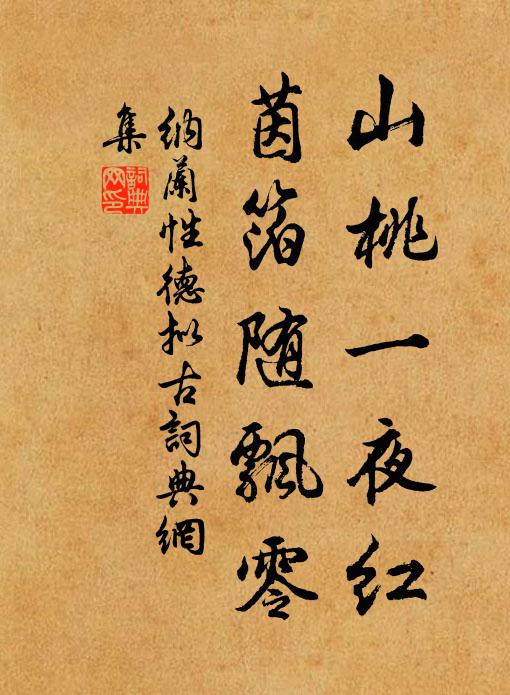 山桃一夜红
茵箔随飘零
纳兰性德拟古词典网
集
词典网印